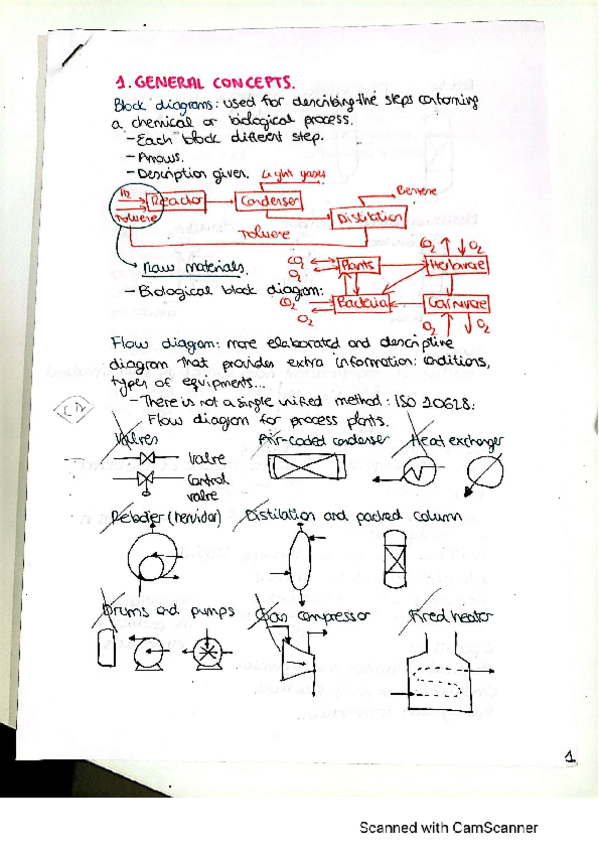 1. GENERAL CONCEPTS.
Block diagrams: used for describing the steps conforming
a chemical or biological process.
- Each block different step.
- Arrows.
- Description given.
Light gases
H2
Toluene
Reactor
Condenser
Distilation
Benzene
Toluene
Raw materials.
- Biological block diagram:
CO2
O2
Plants
Herbivore
CO2
O2
CO2
O2
Bacteria
Carnivore
O2
O2
Flow diagram: more elaborated and descriptive
diagram that provides extra information: conditions,
types of equipments...
- There is not a single unified method: ISO 10628:
Flow diagram for process plants.
Valves
Air-cooled condenser
Heat exchanger
Valve
Control
valve
Reboiler (hervidor)
Distilation and packed column
Drums and pumps
Gas compressor
Fired heater
1
Scanned with CamScanner